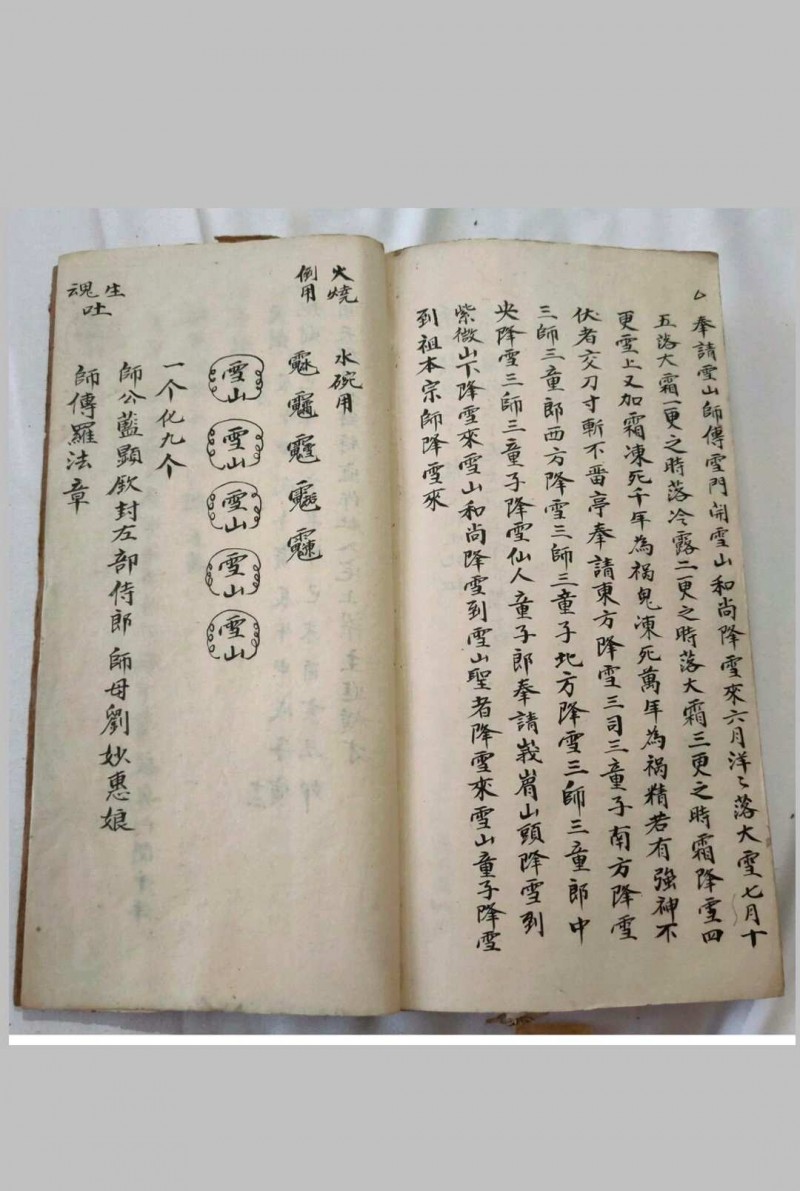 奉請雪山師傳雪門開雪山和尚降雪來六月洋〻落大雪七月十
五落大霜一更之時落冷露二更之時落大霜三更之時霜降雪四
更雪上又加霜凍死千年為禍鬼凍死萬年為禍精若有強神不
伏者交刀寸斬不番亭奉請東方降雪三司三童子南方降雪
三師三童郎西方降雪三師三童子北方降雪三師三童郎中
央降雪三師三童子降雪仙人童子郎奉請峩眉山頭降雪到
紫微山下降雪來雪山和尚降雪到雪山聖者降雪來雪山童子降雪
到祖本宗師降雪來
火燒 水碗用
倒用
雪山
雪山
雪山
雪山
雪山
一个化九个
師公藍顯欽封左部侍郎 師母劉妙惠娘
師傳羅法章
生
魂
吐